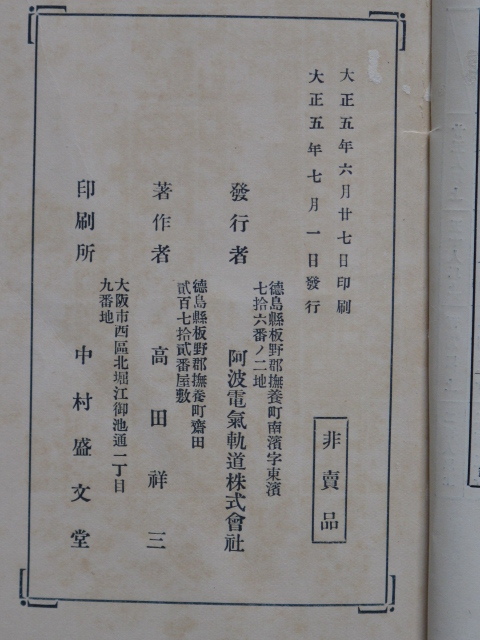 大正五年六月廿七日印刷
大正五年七月一日發行
非賣品
德島縣板野郡撫養町南濱字東濱
七拾六番ノ二地
發行者 阿波電氣軌道株式會社
德島縣板野郡撫養町齋田
貳百七拾貳番屋敷
著作者 高田祥三
大阪市西區北堀江御池通一丁目
九番地
印刷所 中村盛文堂